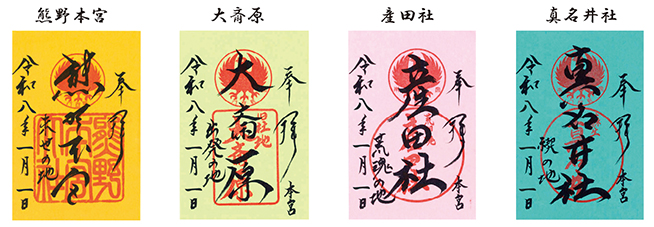 熊野本宮
奉拝
熊野本宮
来世の地
令和八年一月一日
大斎原
奉拝
本宮
大斎原
出発の地
令和八年一月一日
産田社
奉拝
本宮
産田社
荒魂の地
令和八年一月一日
真名井社
奉拝
本宮
真名井社
禊の地
令和八年一月一日